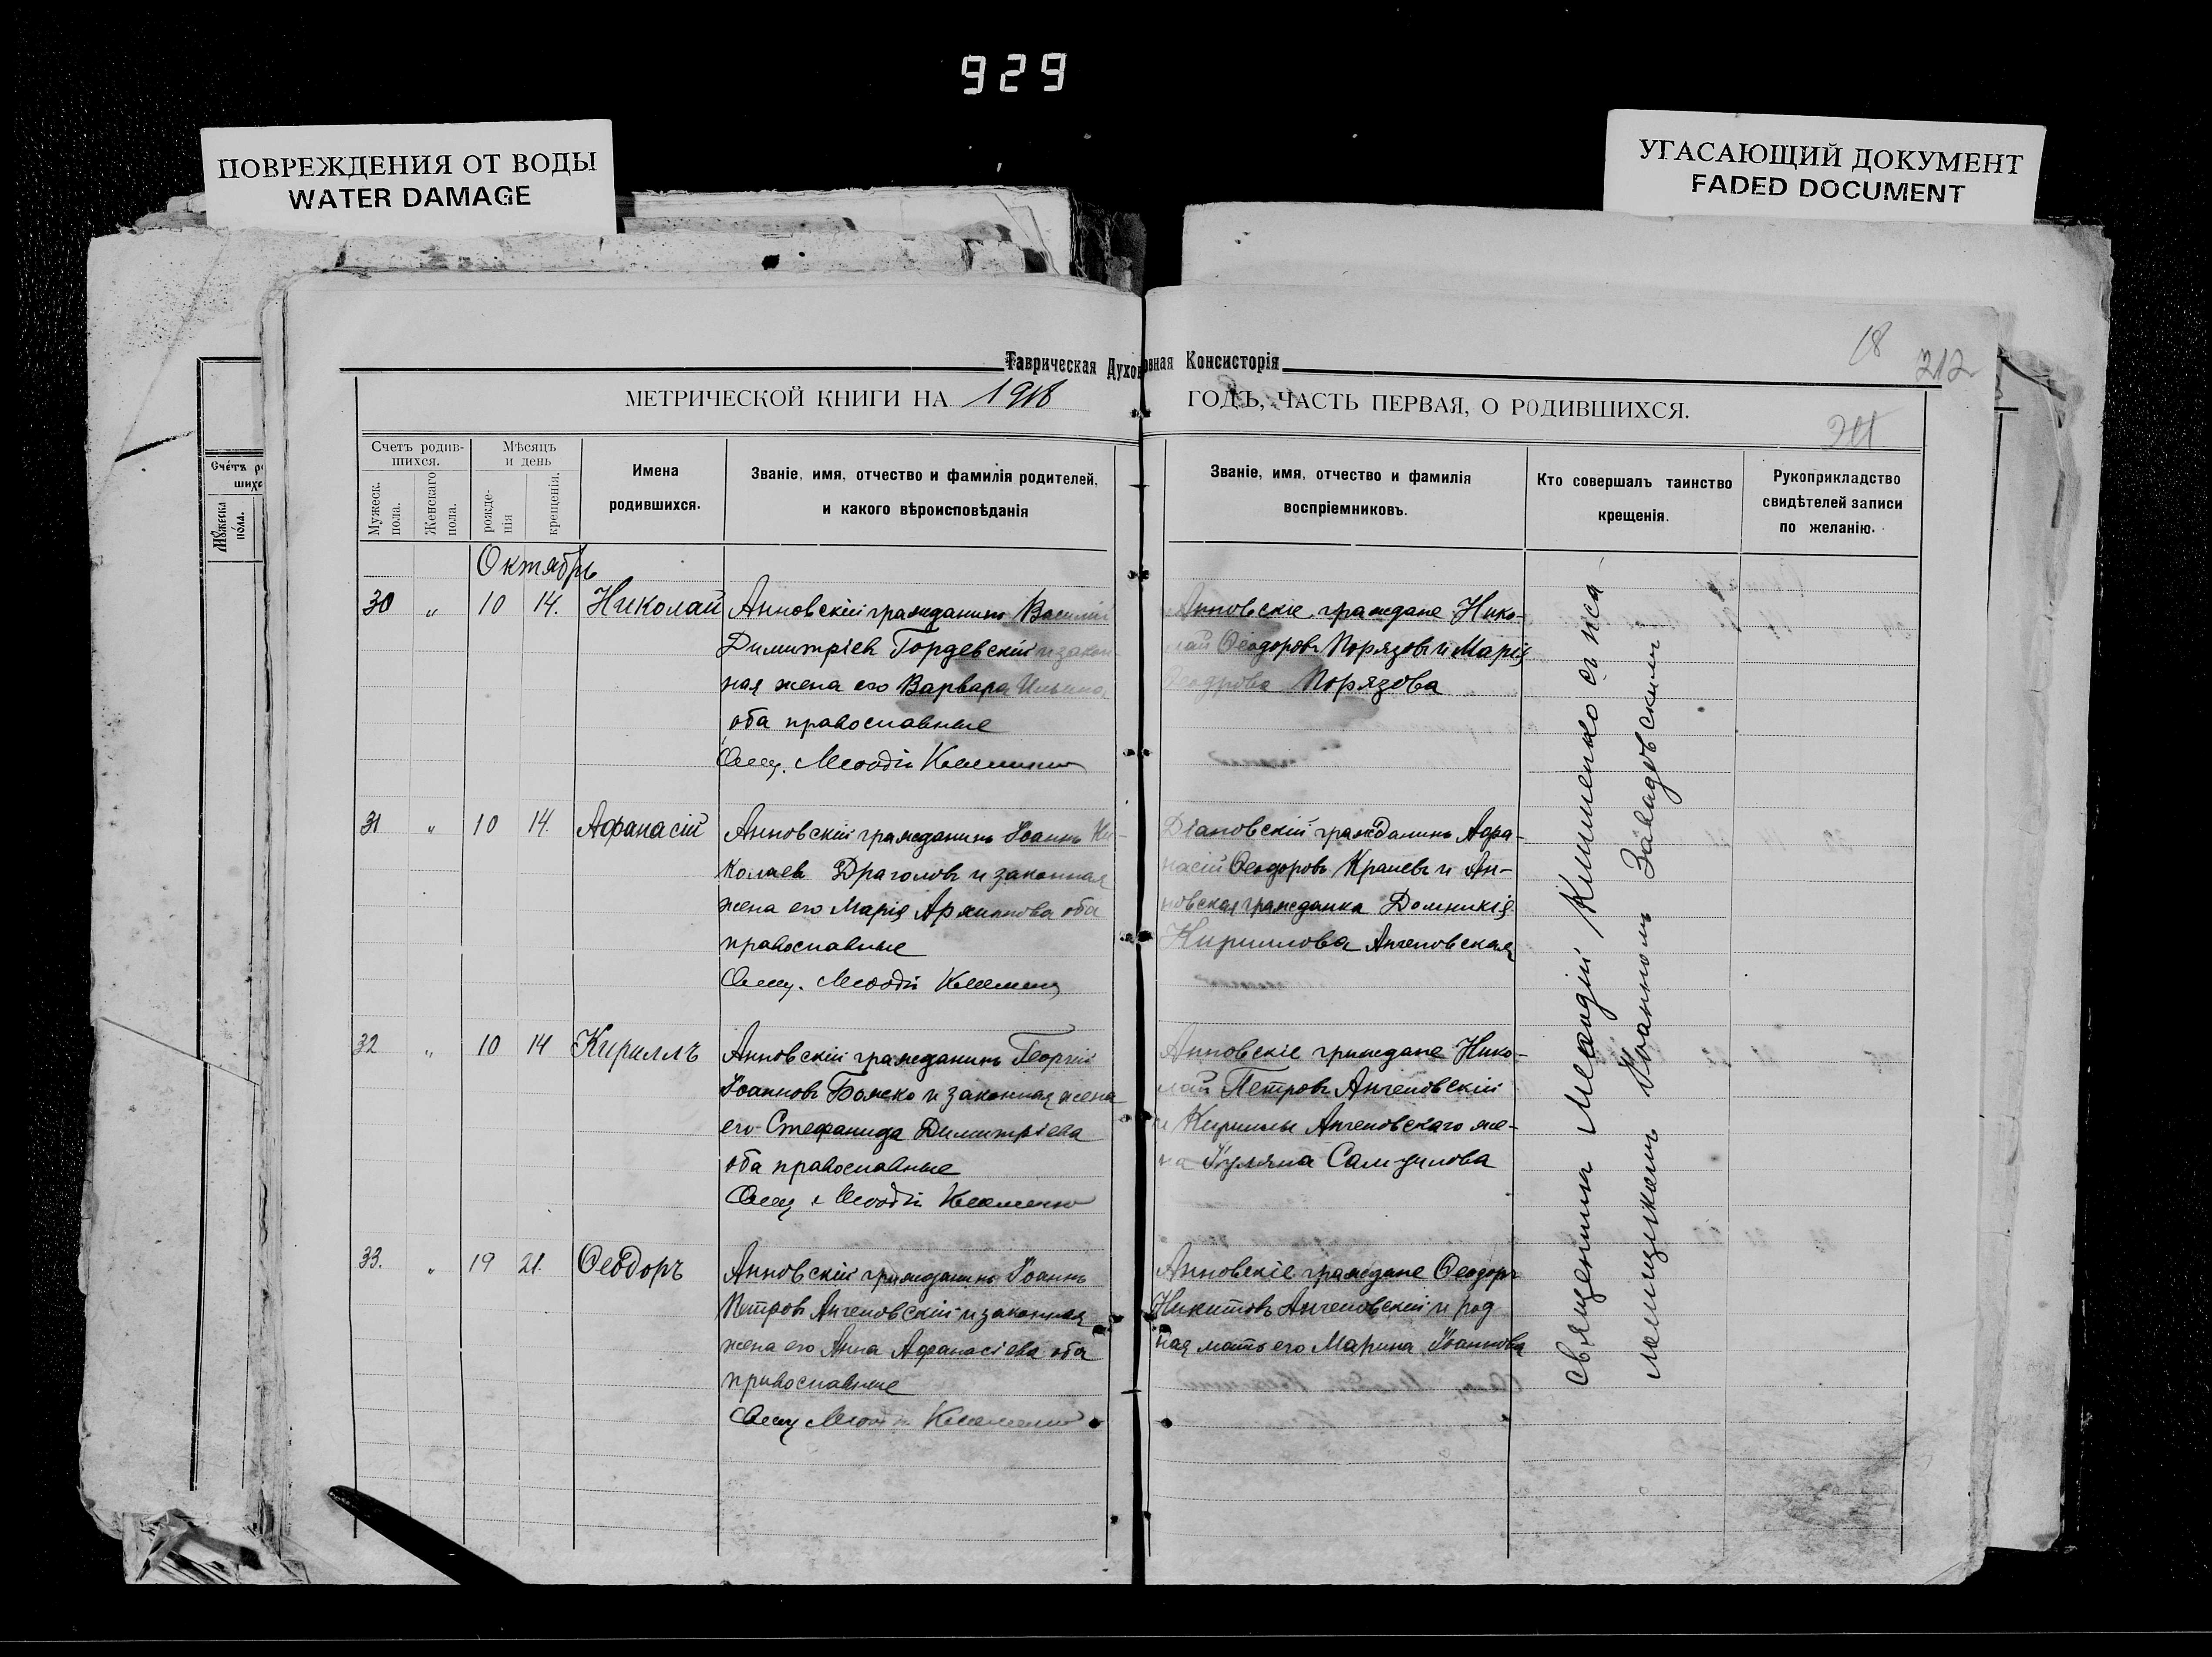 929
ПОВРЕЖДЕНИЯ ОТ ВОДЫ
WATER DAMAGE
УГАСАЮЩИЙ ДОКУМЕНТ
FADED DOCUMENT
18
212
Таврическая Духовная Консисторія
МЕТРИЧЕСКОЙ КНИГИ НА 1918 ГОДЪ, ЧАСТЬ ПЕРВАЯ, О РОДИВШИХСЯ.
Счетъ родив-
шихся.
Мужеск.
пола.
Женскаго
пола.
Мѣсяцъ
и день
рожде-
нія
крещенія.
Имена
родившихся.
Званіе, имя, отчество и фамилія родителей,
и какого вѣроисповѣданія
Званіе, имя, отчество и фамилія
воспріемниковъ.
Кто совершалъ таинство
крещенія.
Рукоприкладство
свидѣтелей записи
по желанію.
Октябрь
30 " 10 14. Николай
Анновскій гражданинъ Василій
Димитріевъ Гордевскій и закон-
ная жена его Варвара Ильина
оба православные
Свящ. Меѳодій Клименко
Анновскіе граждане Нико-
лай Ѳеодоровъ Порязовъ и Марія
Ѳеодорова Порязова
31 " 10 14. Афанасій
Анновскій гражданинъ Іоаннъ Ни-
колаевъ Драголовъ и законная
жена его Марія Архипова оба
православные
Свящ. Меѳодій Клименко
Діановскій гражданинъ Афа-
насій Ѳеодоровъ Кралевъ и Ан-
новская гражданка Домникія
Кириллова Анчеповская
32 " 10 14 Кириллъ
Анновскій гражданинъ Георгій
Іоанновъ Божко и законная жена
его Стефанида Димитріева
оба православные
Свящ. Меѳодій Клименко
Анновскіе граждане Нико-
лай Петровъ Анчеповскій
и Кириллы Анчеповскаго же-
на Іуліана Самуилова
33. " 19 21. Ѳеодоръ
Анновскій гражданинъ Іоаннъ
Петровъ Анчеповскій и законная
жена его Анна Афанасіева оба
православные
Свящ Меѳодій Клименко
Анновскіе граждане Ѳеодоръ
Никитовъ Анчеповскій и род-
ная мать его Марина Іоаннова
Священникъ Меѳодій Клименко съ пса-
ломщикомъ Іоанномъ Завадовскимъ
Счетъ р
шихс
Мужеска
пола.